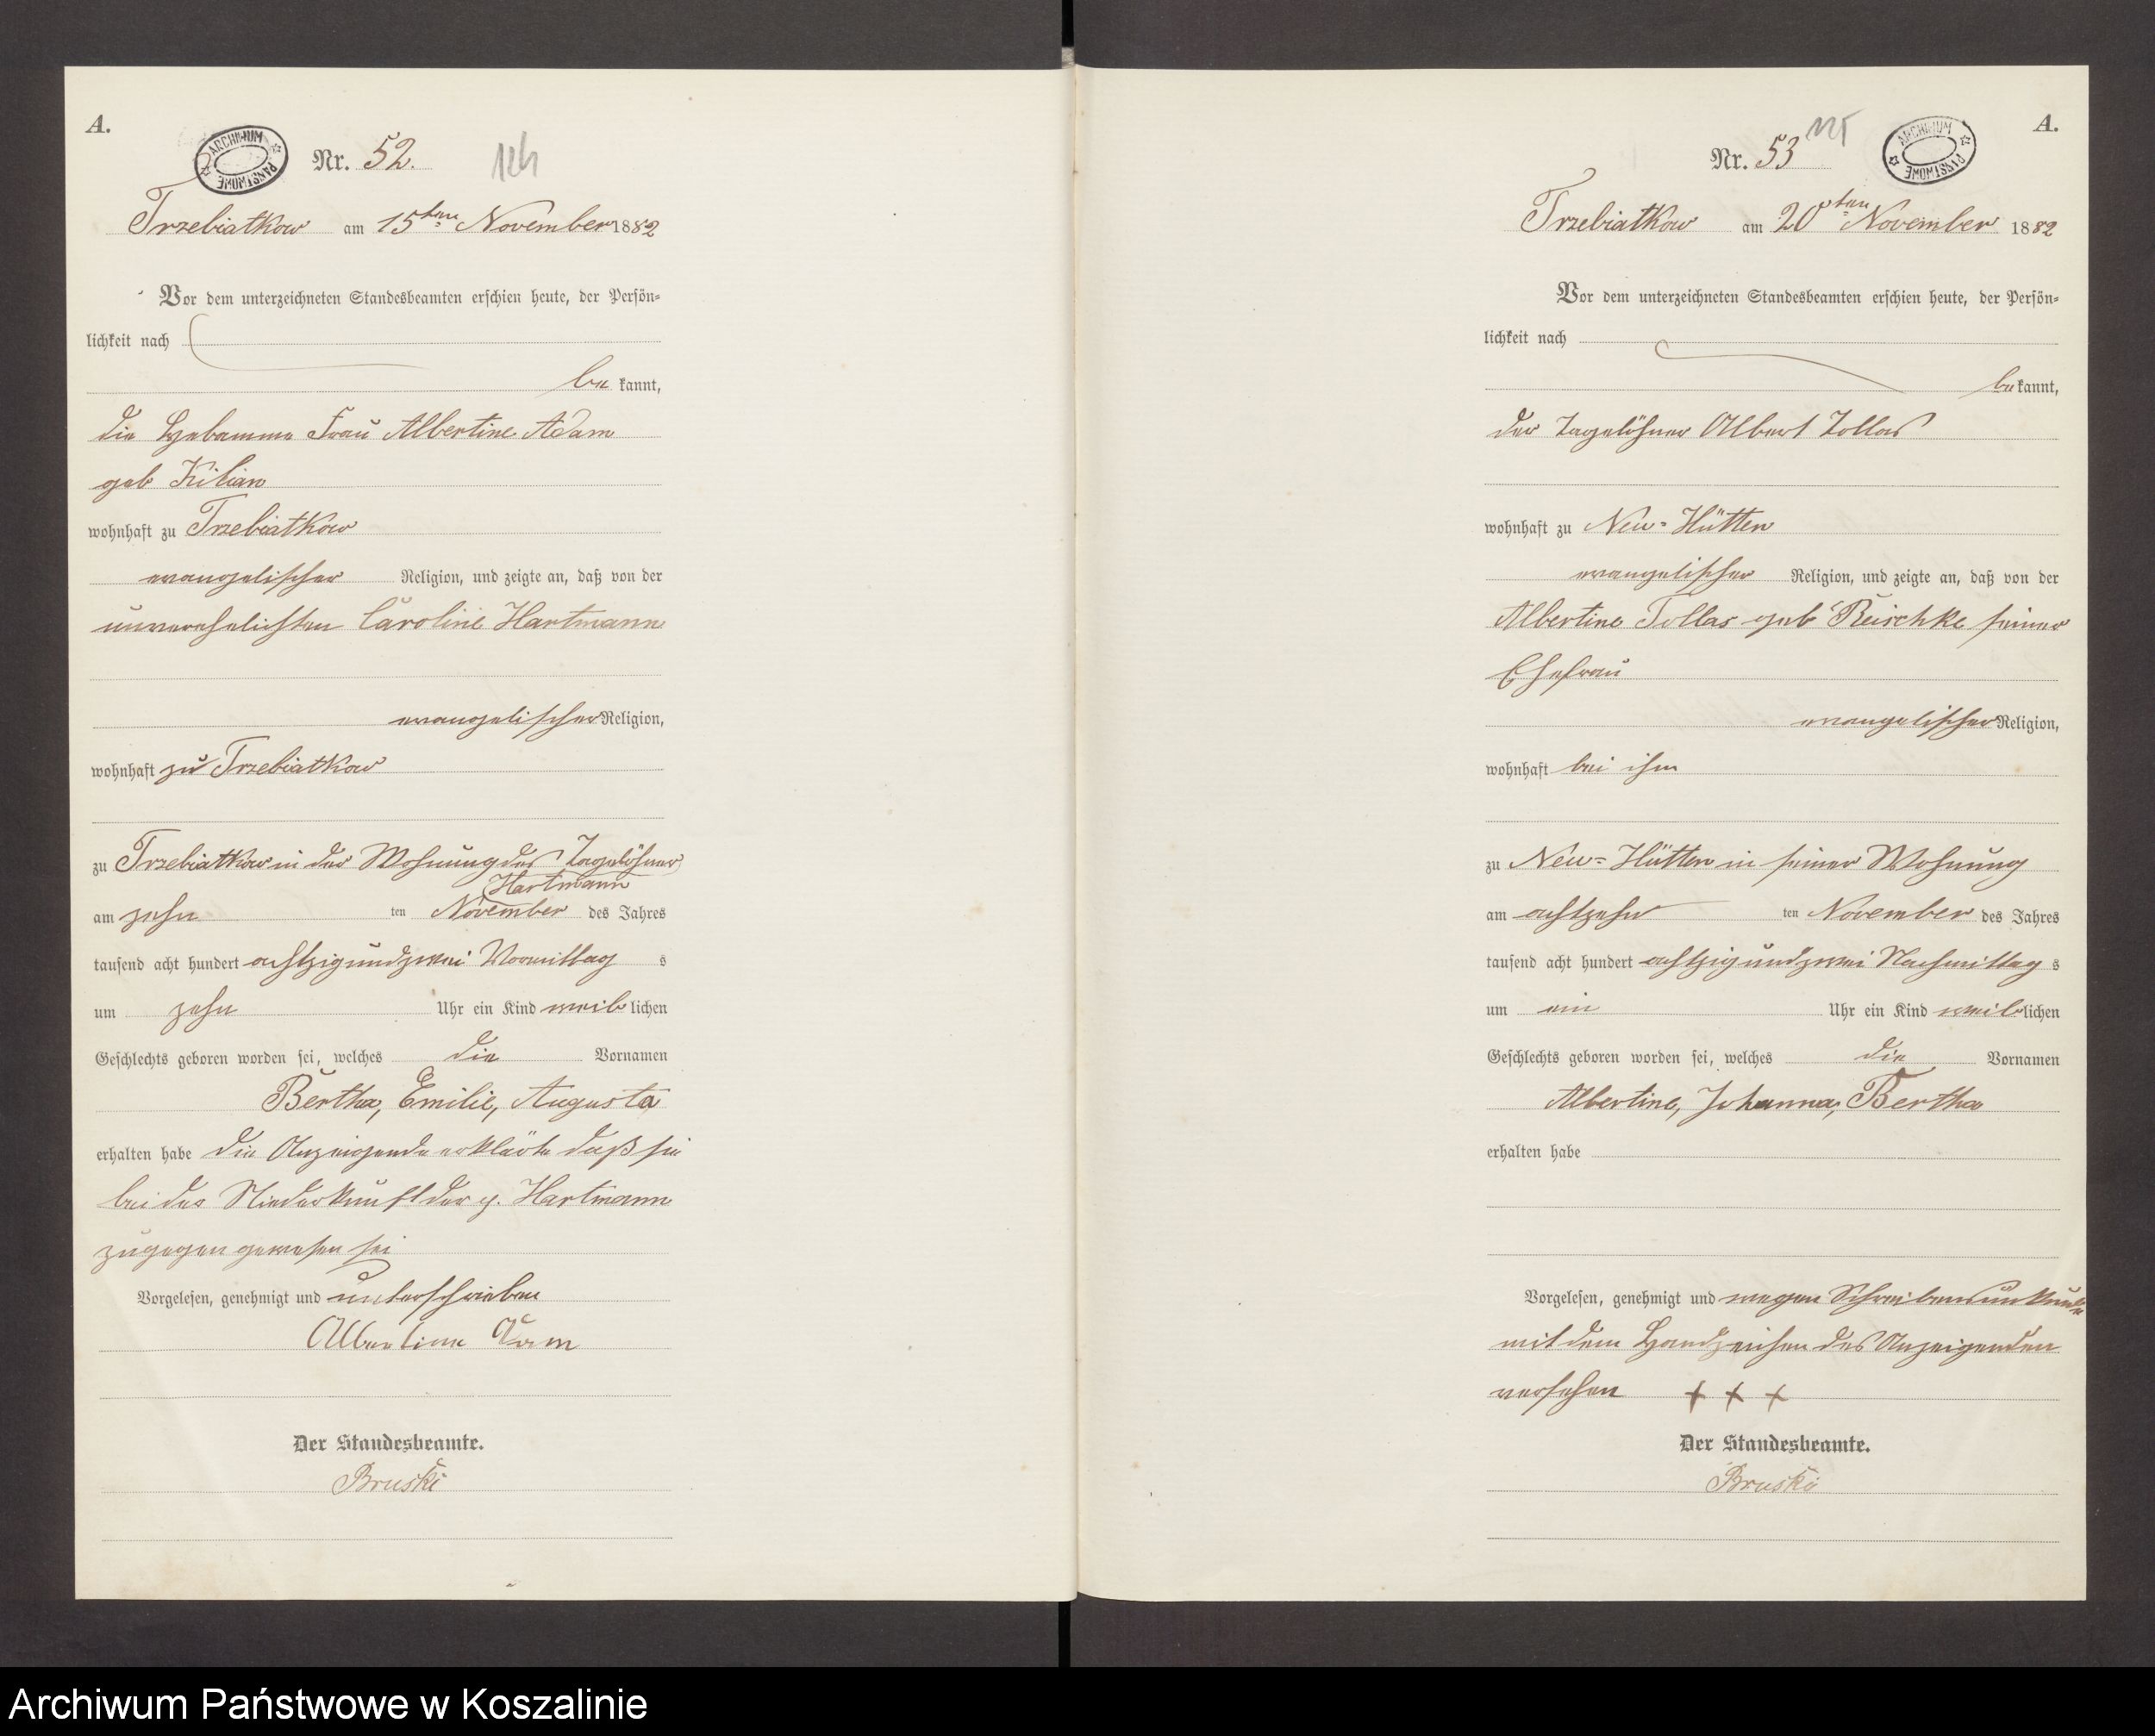 A.
ARCHIWUM PAŃSTWOWE
Nr. 52.
124
Trzebiatkow am 15ten November 1882
Vor dem unterzeichneten Standesbeamten erschien heute, der Persön=
lichkeit nach
be kannt,
die Hebamme Frau Albertine Adam
geb Kilian
wohnhaft zu Trzebiatkow
evangelischer Religion, und zeigte an, daß von der
unverehelichten Caroline Hartmann
evangelischer Religion,
wohnhaft zu Trzebiatkow
zu Trzebiatkow in der Wohnung des Tagelöhner
Hartmann
am zehn ten November des Jahres
tausend acht hundert achtzig und zwei Vormittag s
um zehn Uhr ein Kind weib lichen
Geschlechts geboren worden sei, welches die Vornamen
Bertha, Emilie, Augusta
erhalten habe die Anzeigende erklärte daß sie
bei der Niederkunft der p. Hartmann
zugegen gewesen sei
Vorgelesen, genehmigt und unterschrieben
Albertine Adam
Der Standesbeamte.
Bruski
A.
ARCHIWUM PAŃSTWOWE
Nr. 53
125
Trzebiatkow am 20ten November 1882
Vor dem unterzeichneten Standesbeamten erschien heute, der Persön=
lichkeit nach
be kannt,
der Tagelöhner Albert Tollas
wohnhaft zu Neu=Hütten
evangelischer Religion, und zeigte an, daß von der
Albertine Tollas geb Reischke seiner
Ehefrau
evangelischer Religion,
wohnhaft bei ihm
zu Neu=Hütten in seiner Wohnung
am achtzehn ten November des Jahres
tausend acht hundert achtzig und zwei Nachmittag s
um ein Uhr ein Kind weib lichen
Geschlechts geboren worden sei, welches die Vornamen
Albertine, Johanna, Bertha
erhalten habe
Vorgelesen, genehmigt und wegen Schreibensunkunde
mit dem Handzeichen des Anzeigenden
versehen + + +
Der Standesbeamte.
Bruski
Archiwum Państwowe w Koszalinie